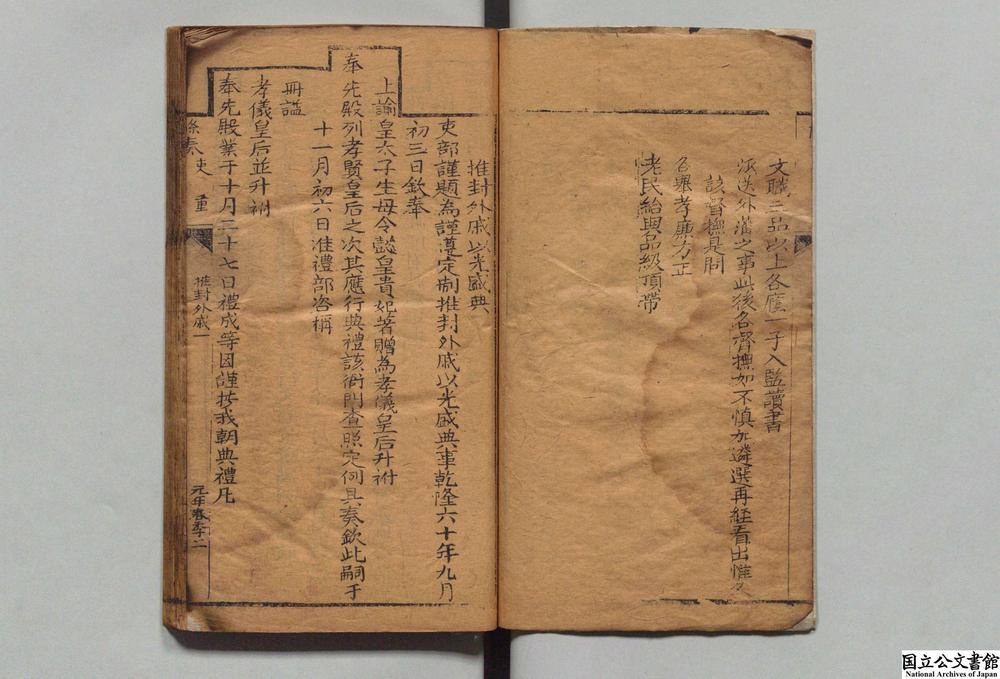 文職三品以上各廕一子入監讀書
派送外藩之事此後各督撫如不慎加遴選再經看出惟
該督撫是問
召舉孝廉方正
老民給與品級頂帶
推封外戚以光盛典
吏部謹題為謹遵定制推封外戚以光盛典事乾隆六十年九月
初三日欽奉
上諭皇太子生母令懿皇貴妃著贈為孝儀皇后升祔
奉先殿列孝賢皇后之次其應行典禮該衙門查照定例具奏欽此嗣于
十一月初六日准禮部咨稱
冊謚
孝儀皇后並升祔
奉先殿業于十月二十七日禮成等因謹按我朝典禮凡
條奏 吏 重
推封外戚一
元年春季二
国立公文書館
National Archives of Japan